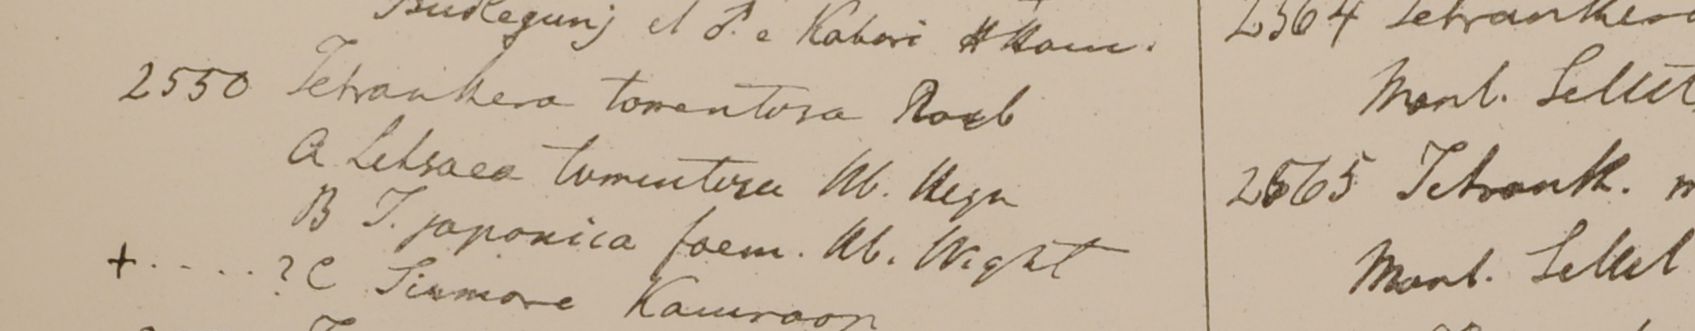 Budlegunj et P. e Kabori H Ham.
2550 Tetranthera tomentosa Roxb
A Letsaea tomentosa Hb. Heyn
B T. japonica foem. Hb. Wight
+ . . . . . ? C Sirmore Kamroon
2564 Tetranthera
Mont. Sillet
2565 Tetranth.
Mont. Sillet